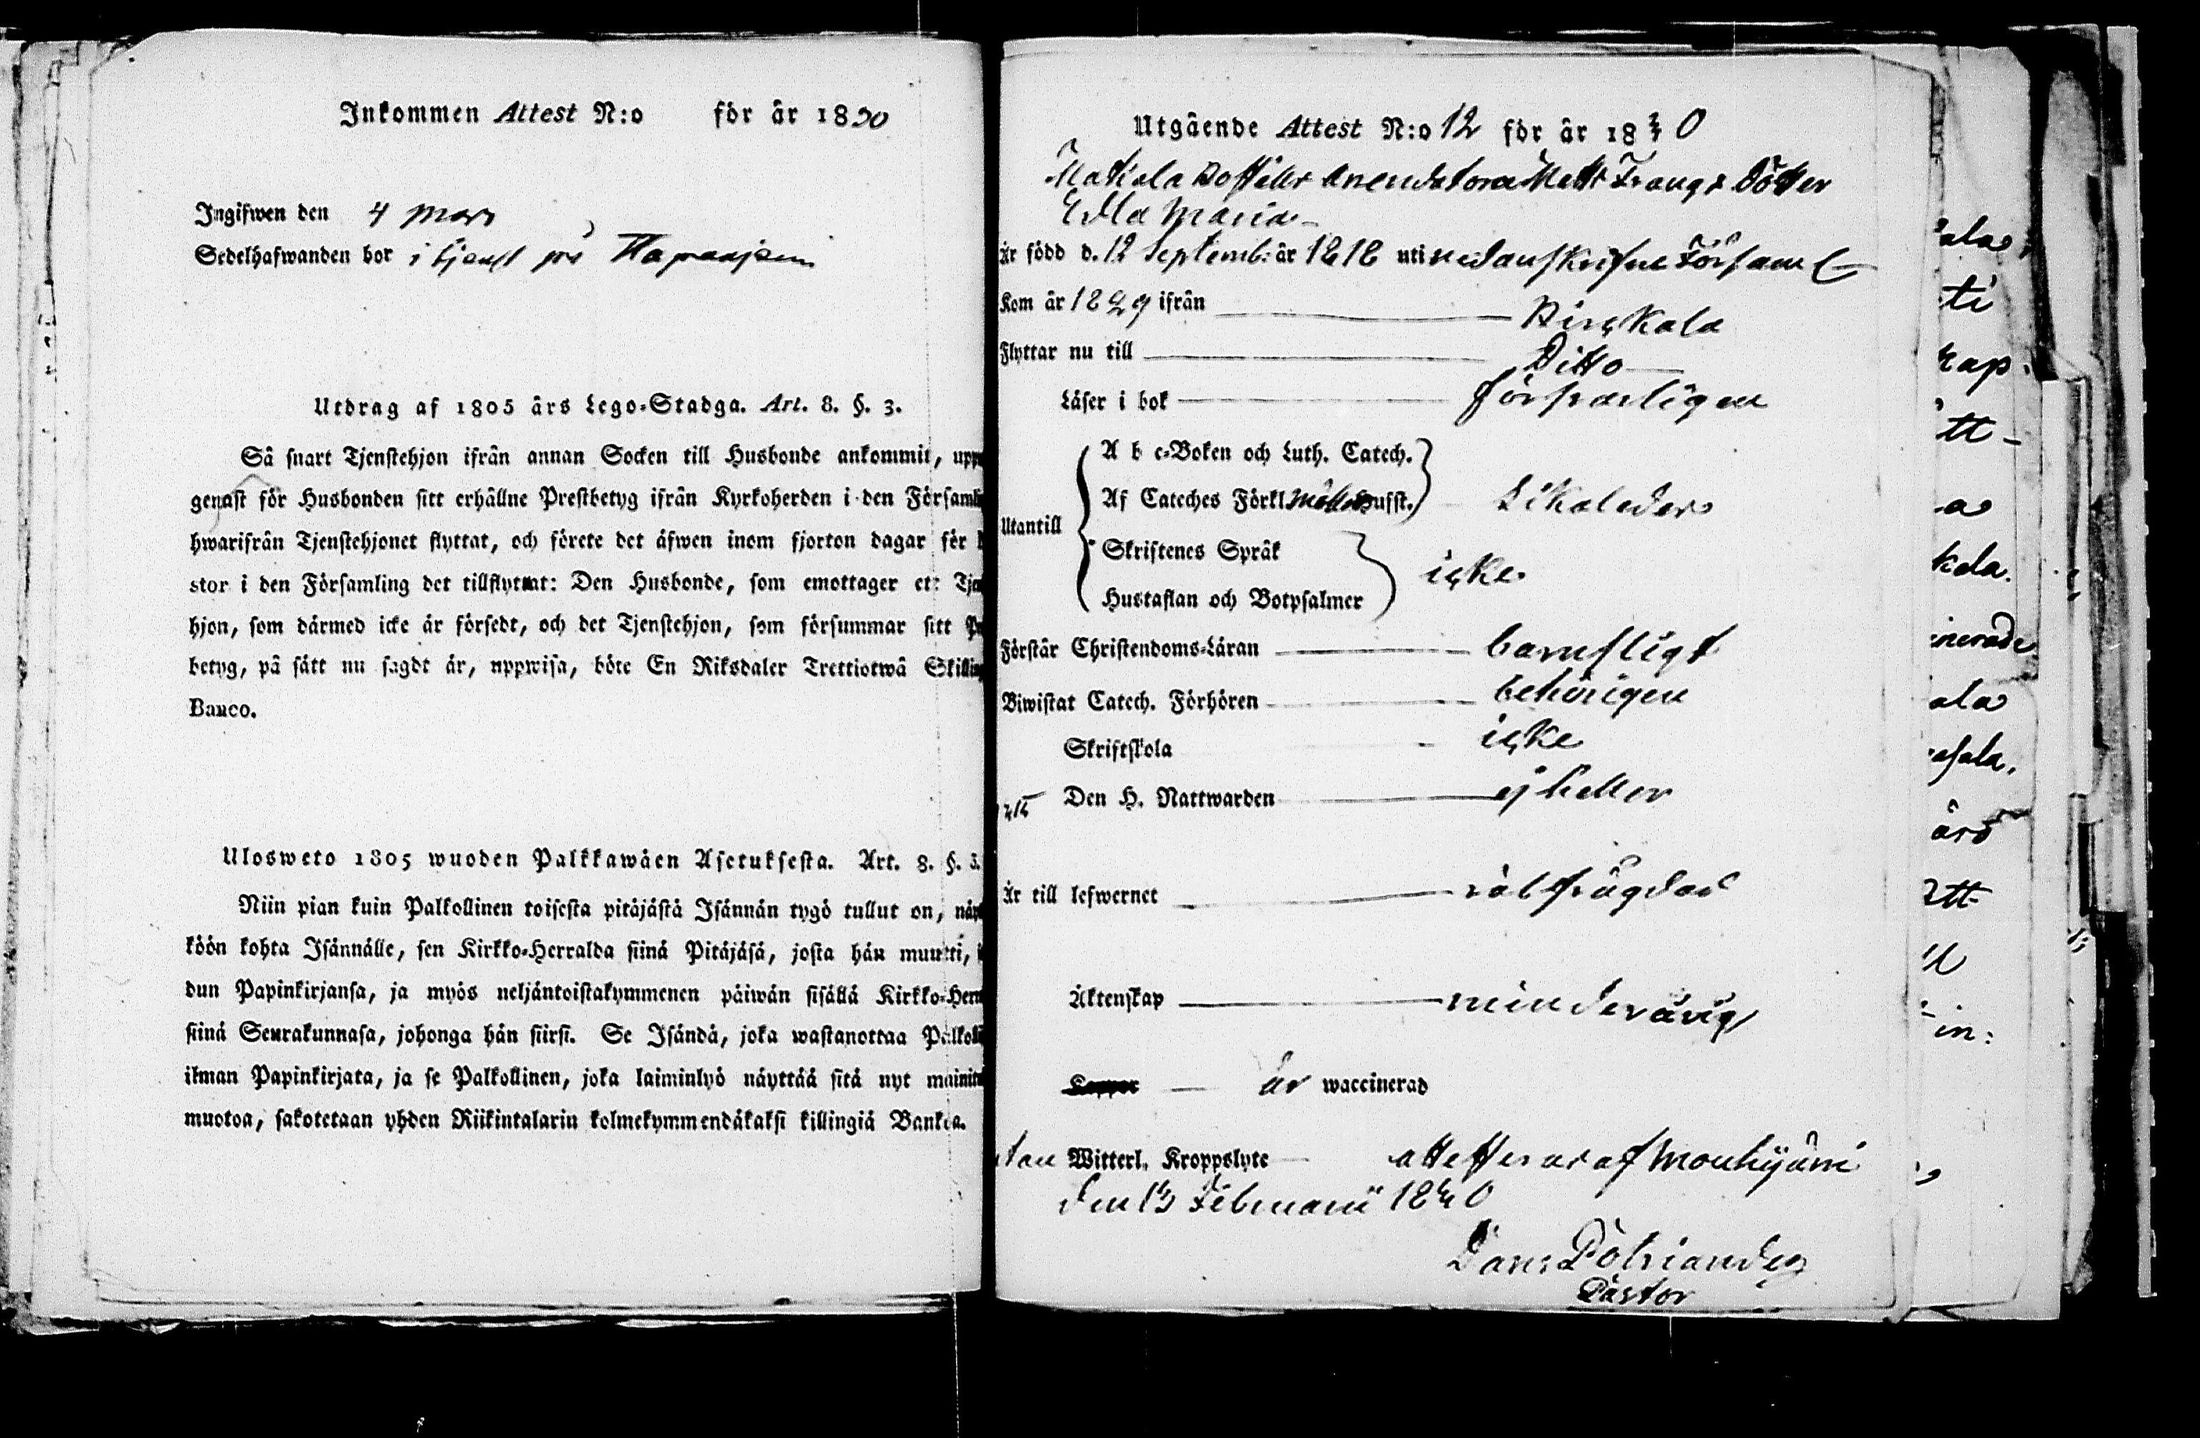 Inkommen Attest N:o för år 1830
Ingifwen den 4 mars
Sedelhafwanden bor i tjenst på Haapaniemi
Utdrag af 1805 års Lego-Stadga. Art. 8. §. 3.
Så snart Tjenstehjon ifrån annan Socken till Husbonde ankommit, upp
genast för Husbonden sitt erhållne Prestbetyg ifrån Kyrkoherden i den Församl
hwarifrån Tjenstehjonet flyttat, och förete det äfwen inom fjorton dagar för
stor i den Församling det tillflyttat: Den Husbonde, som emottager ett Tje
hjon, som därmed icke är försedt, och det Tjenstehjon, som försummar sitt P
betyg, på sätt nu sagdt är, uppwisa, böte En Riksdaler Trettiotwå Skilling
Banco.
Ulosweto 1805 wuoden Palkkawäen Asetuksesta. Art. 8. §. 3.
Niin pian kuin Palkollinen toisesta pitäjästä Isännän tygö tullut on, näy
köön kohta Isännälle, sen Kirkko-Herralda siinä Pitäjäsä, josta hän muutti,
dun Papinkirjansa, ja myös neljäntoistakymmenen päiwän sisällä Kirkko-Herr
siinä Seurakunnasa, johonga hän siirsi. Se Isändä, joka wastanottaa Palkoll
ilman Papinkirjata, ja se Palkollinen, joka laiminlyö näyttää sitä nyt mainit
muotoa, sakotetaan yhden Riikintalarin kolmekymmendäkaksi killingiä Bankoa.
Utgående Attest N:o 12 för år 1830
Matts Dotter
Edla Maria
Är född d. 12 Septemb: år 1818 uti nedanskrifne Församl
Kom år 1829 ifrån Birckala
Flyttar nu till Ditto
Läser i bok försvarligen
A b c-Boken och Luth. Catech.
Af Cateches Förkl. Hufst. Likaledes
Utantill
Skriftenes Språk
icke
Hustaflan och Botpsalmer
Förstår Christendoms-Läran barnsligt
Biwistat Catech. Förhören behörigen
Skriftskola icke
Den H. Nattwarden ej heller
Är till lefwernet välfrägdad
Äktenskap minderårig
Koppor är waccinerad
utan Witterl. Kroppslyte attesterar af Mouhijärvi
den Februarii 1830
Pastor